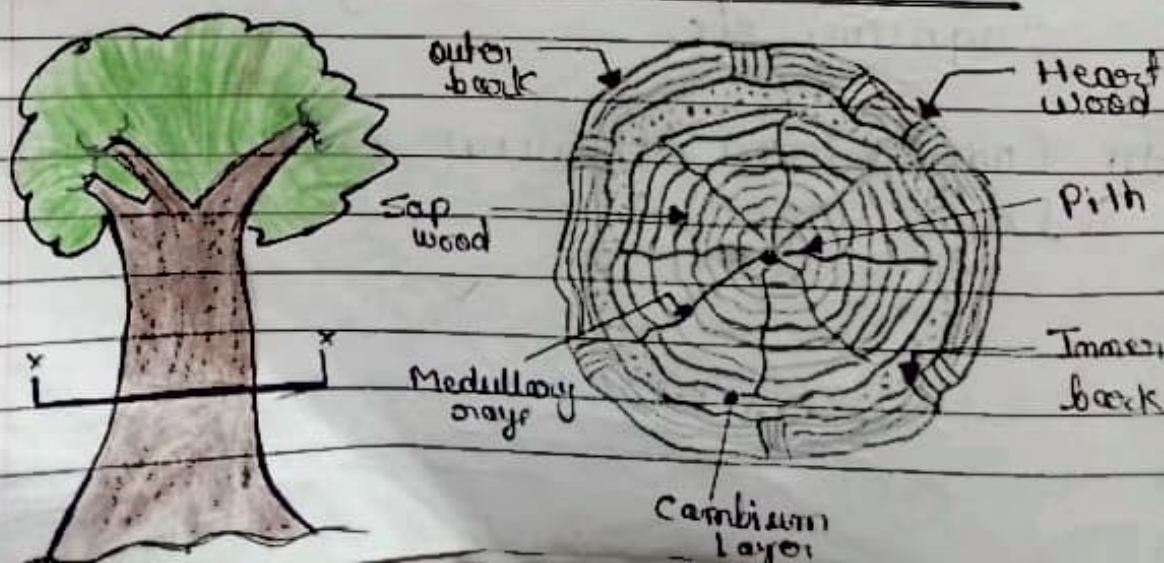 outer
bark
Heart
wood
Sap
wood
Pith
x
x
Medullary
rays
Inner
bark
Cambium
Layer